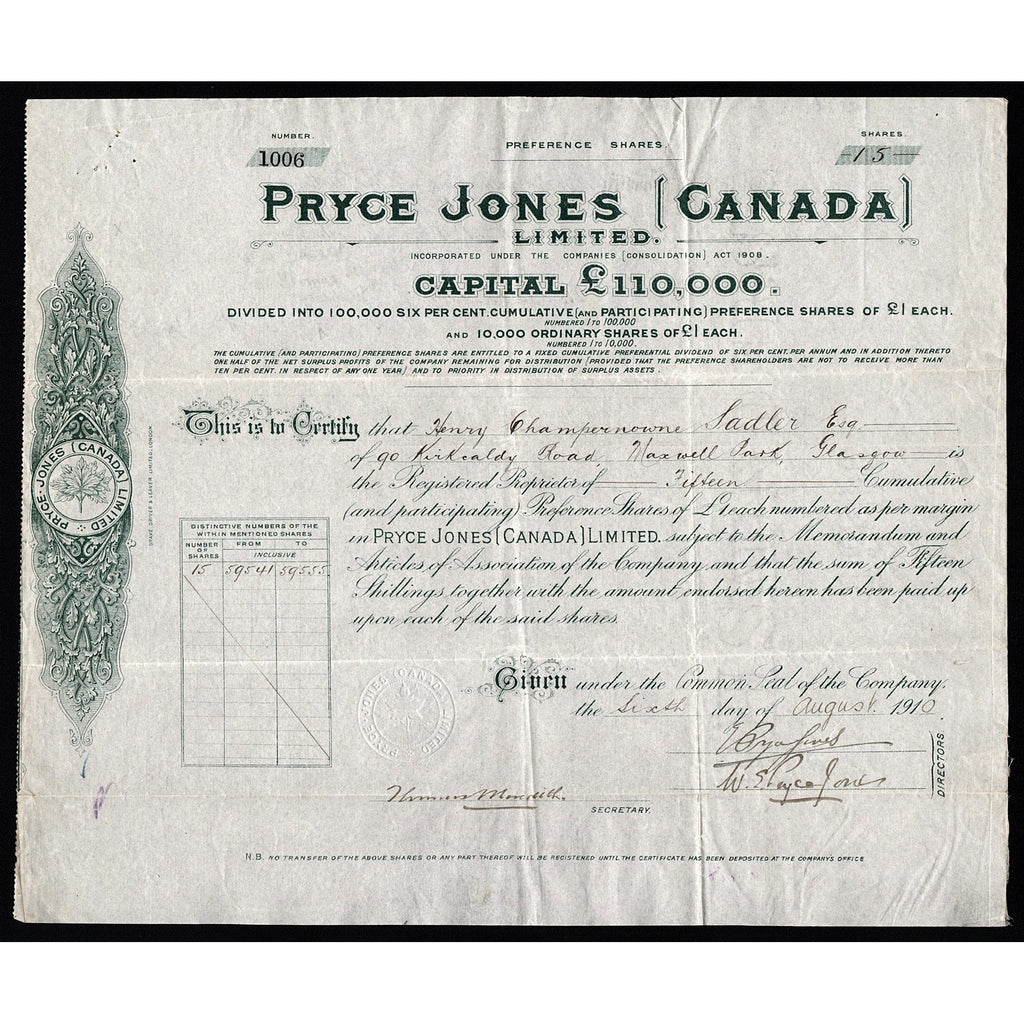 NUMBER.
SHARES.
1006
PREFERENCE SHARES.
15
PRYCE JONES (CANADA)
LIMITED.
INCORPORATED UNDER THE COMPANIES (CONSOLIDATION) ACT 1908.
CAPITAL £110,000.
DIVIDED INTO 100,000 SIX PER CENT. CUMULATIVE (AND PARTICIPATING) PREFERENCE SHARES OF £1 EACH.
NUMBERED 1 TO 100,000
AND 10,000 ORDINARY SHARES OF £1 EACH.
NUMBERED 1 TO 10,000.
THE CUMULATIVE (AND PARTICIPATING) PREFERENCE SHARES ARE ENTITLED TO A FIXED CUMULATIVE PREFERENTIAL DIVIDEND OF SIX PER CENT. PER ANNUM AND IN ADDITION THERETO
ONE HALF OF THE NET SURPLUS PROFITS OF THE COMPANY REMAINING FOR DISTRIBUTION (PROVIDED THAT THE PREFERENCE SHAREHOLDERS ARE NOT TO RECEIVE MORE THAN
TEN PER CENT. IN RESPECT OF ANY ONE YEAR) AND TO PRIORITY IN DISTRIBUTION OF SURPLUS ASSETS.
This is to Certify that Henry Champernowne Sadler Esq.
of 90 Kirkcaldy Road, Maxwell Park, Glasgow is
the Registered Proprietor of Fifteen Cumulative
(and participating) Preference Shares of £1 each numbered as per margin
in PRYCE JONES (CANADA) LIMITED. subject to the Memorandum and
Articles of Association of the Company, and that the sum of Fifteen
Shillings together with the amount endorsed hereon has been paid up
upon each of the said shares.
PRYCE-JONES (CANADA) LIMITED
DRAKE, DRIVER & LEAVER LIMITED, LONDON.
DISTINCTIVE NUMBERS OF THE
WITHIN MENTIONED SHARES
NUMBER OF SHARES FROM TO
INCLUSIVE
15 59541 59555
Given under the Common Seal of the Company.
the Sixth day of August 1910.
PRYCE-JONES (CANADA) LIMITED
W. E. Pryce Jones
DIRECTORS
Thomas Meredith.
SECRETARY.
N.B. NO TRANSFER OF THE ABOVE SHARES OR ANY PART THEREOF WILL BE REGISTERED UNTIL THE CERTIFICATE HAS BEEN DEPOSITED AT THE COMPANY'S OFFICE